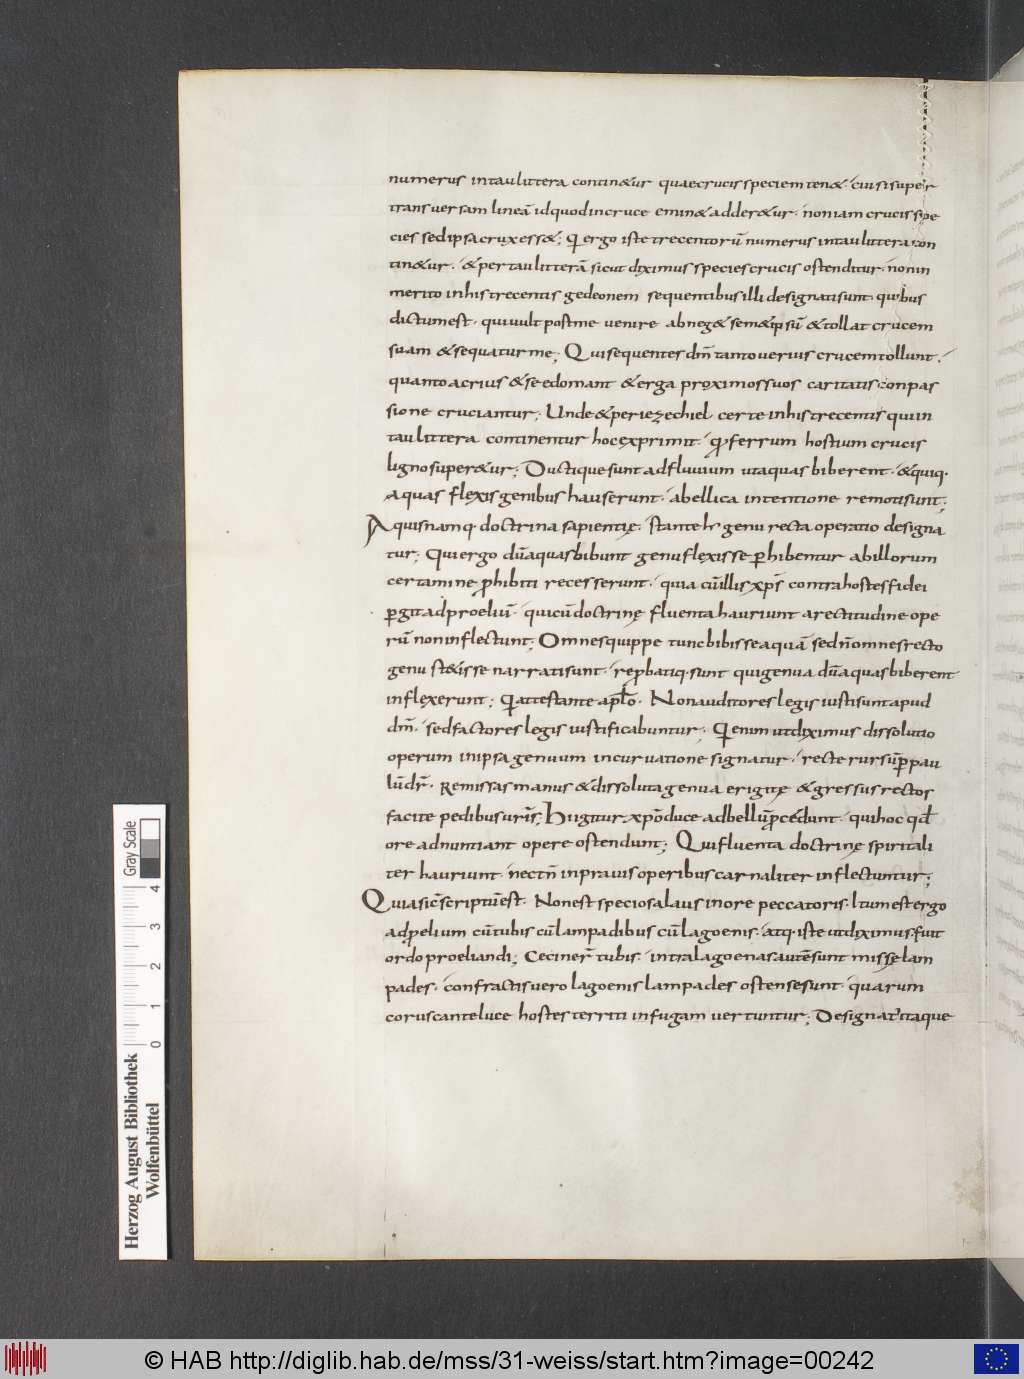 numerus intaulittera contin&ur quaecrucis speciem ten& · cui sisuper
transversam lineā idquodincruce emin& adder&ur · noniam crucis spe
cies sedipsacrux ess&; Q̄ ergo iste trecentorū numerus intaulittera con
tin&ur · & per taulitterā sicut diximus species crucis ostenditur · nonin
merito inhis trecentis gedeonem sequentibus illi designati sunt · quibus
dictum est · qui vult post me venire abneg& sem&ipsū & tollat crucem
suam & sequatur me; Qui sequentes dm̄ tanto verius crucem tollunt ·
quanto acrius & se edomant & erga proximos suos caritatis conpas
sione cruciantur; Unde & per iezechiel certe inhis trecentis qui in
taulittera continentur hoc exprimit · qđ ferrum hostium crucis
ligno super&ur; Ductique sunt ad fluvium ut aquas biberent · & quiq·
aquas flexis genibus hauserunt · abellica intentione remoti sunt;
Aquis namq· doctrina sapientię · stante ħ genu recta operatio designa
tur; Qui ergo dū aquas bibunt genu flexisse ꝑhibentur abillorum
certamine ꝓhibiti recesserunt · quia cū illis xp̄s contra hostes fidei
ꝑgit ad proeliū · qui cū doctrinę fluenta hauriunt arectitudine ope
rū non inflectunt; Omnes quippe tunc bibisse aquā sed n̄ omnes recto
genu st&isse narrati sunt · reꝓbatiq· sunt qui genua dū aquas biberent
inflexerunt; Q̄ attestante aplo · Non auditores legis iusti sunt apud
dm̄ · sed factores legis iustificabuntur; Q̄ enim ut diximus dissolutio
operum in ipsa genuum incurvatione signatur · recte rursū ꝑ pau
lū dr̄ · Remissas manus & dissoluta genua erigitę & gressus rectos
facite pedibus uris̄; Hi igitur xpo duce ad bellū ꝓcedunt · qui hoc qđ
ore adnuntiant opere ostendunt; Qui fluenta doctrinę spiritali
ter hauriunt · nec tn̄ in pravis operibus carnaliter inflectuntur;
Quia sic̄ scriptū est · Non est speciosa laus in ore peccatoris · Itum est ergo
ad p̄elium cū tubis cū lampadibus cū lagoenis · atq· iste ut diximus fuit
ordo proeliandi; Cecineř tubis · intra lagoenas autē sunt missę lam
pades · confractis vero lagoenis lampades ostense sunt · quarum
coruscante luce hostes territi in fugam vertuntur; Designat itaque
Herzog August Bibliothek
Wolfenbüttel
0 1 2 3 4
Gray Scale
© HAB http://diglib.hab.de/mss/31-weiss/start.htm?image=00242